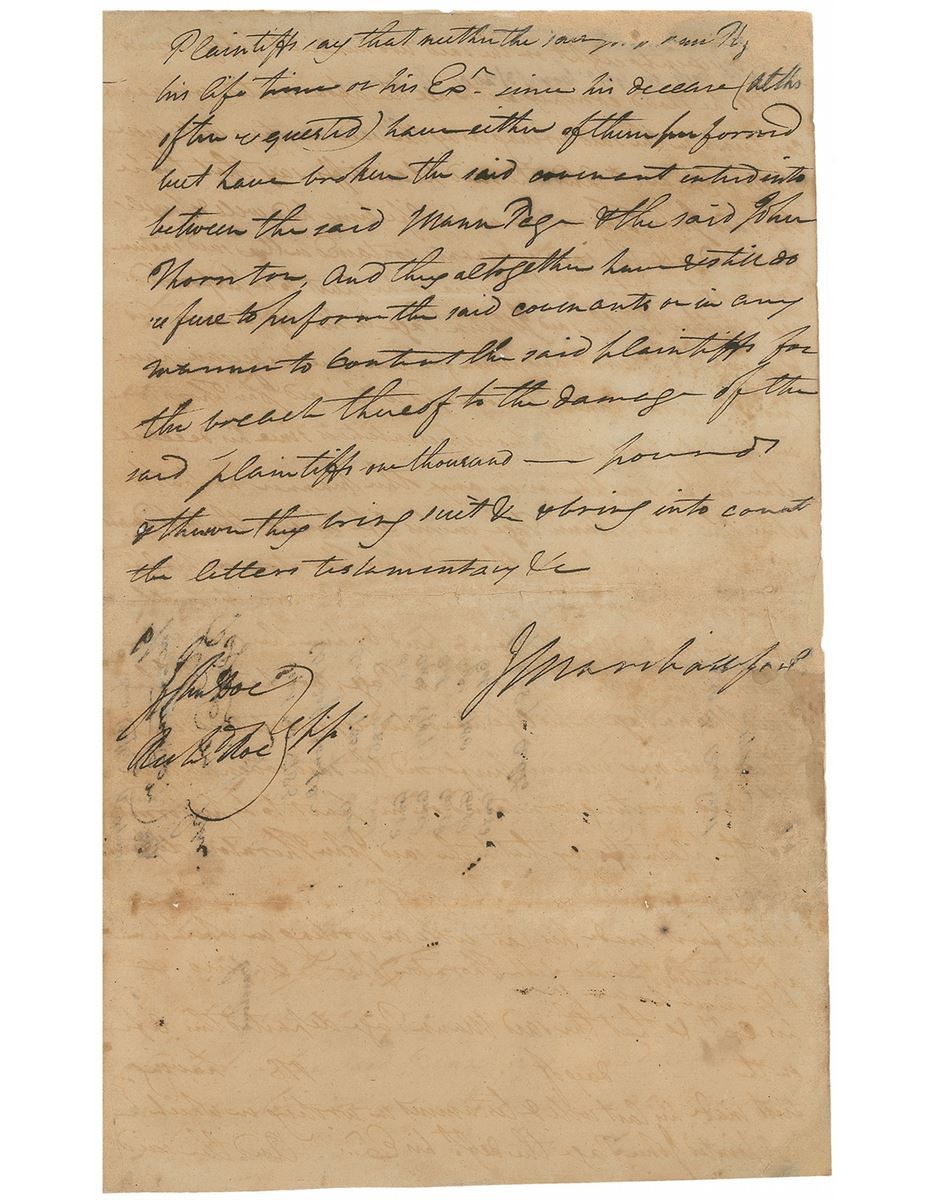 Plaintiffs say that neither the said Mann Page in
his life time or his Exr. since his decease (altho
often requested) have either of them performed
but have broken the said covenant entered into
between the said Mann Page & the said John
Thornton, And they altogether have & still do
refuse to perform the said covenants or in any
manner to content the said plaintiffs for
the breach thereof to the damage of the
said plaintiffs one thousand — pounds
& thereon they bring suit &c & bring into court
the letters testamentary &c
J Marshall for
John Doe
Richd Roe pps.